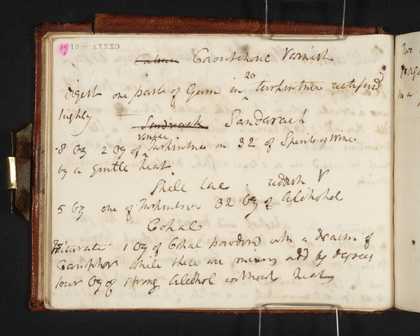 Caoutchouc Varnish
Digest one part of Gum in 20 turpentine rectified
highly
Sandarach Sandarach
Venice
8 oz 2 oz of Turpentine in 32 of Spirits of wine
by a gentle heat.
Shell Lac reddish V
5 oz one of Turpentine 32 oz of Alcohol
Cohal
1 oz of Cohal powder with a drachm of
Camphor while these are mixing add by degrees
four oz of strong Alcohol without heat